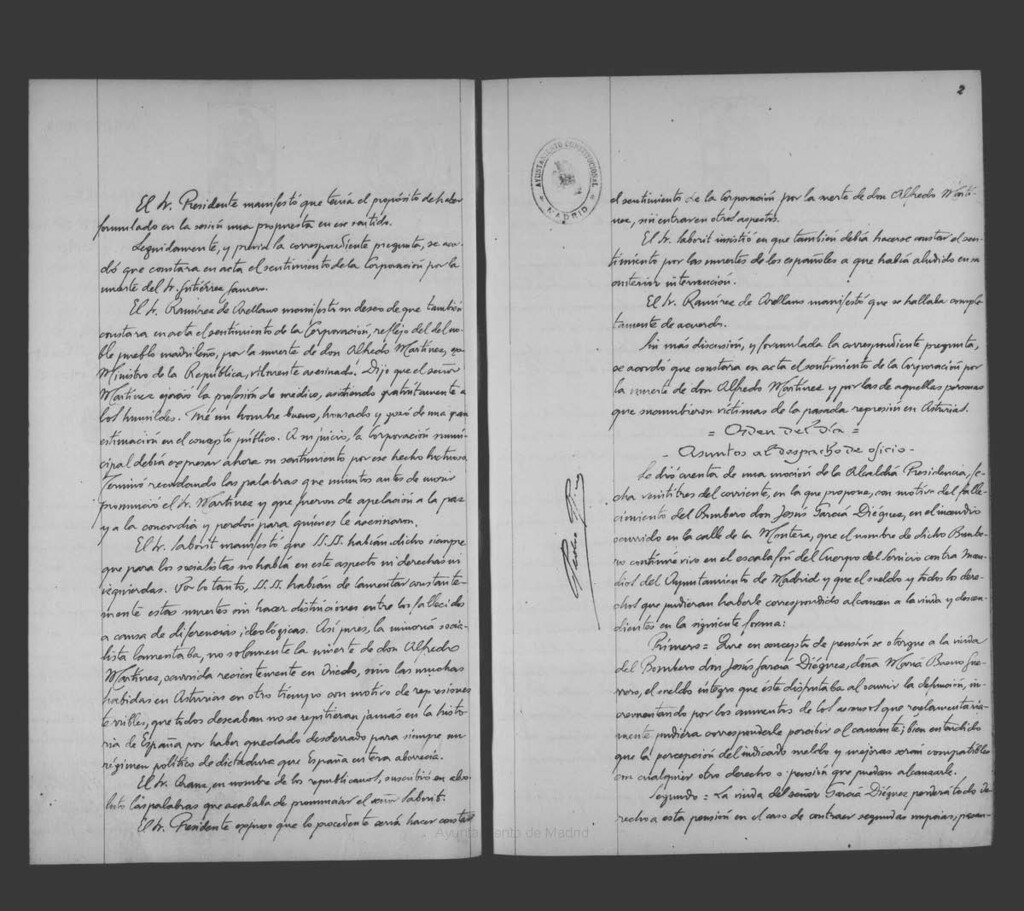 El Sr. Presidente manifestó que tenía el propósito de haber
formulado en la sesión una propuesta en ese sentido.
Seguidamente, y previa la correspondiente pregunta, se acor-
dó que constara en acta el sentimiento de la Corporación por la
muerte del Sr. Gutiérrez
El Sr. Ramírez de Arellano manifestó su deseo de que también
constara en acta el sentimiento de la Corporación, reflejo del del no-
ble pueblo madrileño, por la muerte de don Alfredo Martínez, ex-
Ministro de la República, vilmente asesinado. Dijo que el señor
Martínez ejerció la profesión de médico, asistiendo gratuitamente a
los humildes. Fué un hombre bueno, honrado y gozó de una gran
estimación en el concepto público. A su juicio, la Corporación muni-
cipal debía expresar ahora su sentimiento por ese hecho luctuoso.
Terminó recordando las palabras que minutos antes de morir
pronunció el Sr. Martínez y que fueron de apelación a la paz
y a la concordia y perdón para quienes le asesinaron.
El Sr. Saborit manifestó que SS.SS. habían dicho siempre
que para los socialistas no había en este aspecto ni derechas ni
izquierdas. Por lo tanto, SS.SS. habían de lamentar constante-
mente estas muertes sin hacer distinciones entre los fallecidos
a causa de diferencias ideológicas. Así pues, la minoría socia-
lista lamentaba, no solamente la muerte de don Alfredo
Martínez, ocurrida recientemente en Oviedo, sino las muchas
habidas en Asturias en otro tiempo con motivo de represiones
terribles, que todos deseaban no se repitieran jamás en la histo-
ria de España por haber quedado desterrado para siempre un
régimen político de dictadura que España entera aborrecía.
El Sr. Arauz, en nombre de los republicanos, suscribió en abso-
luto las palabras que acababa de pronunciar el señor Saborit.
El Sr. Presidente expuso que lo procedente sería hacer constar
Ayuntamiento de Madrid
2
AYUNTAMIENTO CONSTITUCIONAL
MADRID
el sentimiento de la Corporación por la muerte de don Alfredo Martí-
nez, sin entrar en otros aspectos.
El Sr. Saborit insistió en que también debía hacerse constar el sen-
timiento por las muertes de los españoles a que había aludido en su
anterior intervención.
El Sr. Ramírez de Arellano manifestó que se hallaba comple-
tamente de acuerdo.
Sin más discusión, y formulada la correspondiente pregunta,
se acordó que constara en acta el sentimiento de la Corporación por
la muerte de don Alfredo Martínez y por las de aquellas personas
que sucumbieron víctimas de la pasada represión en Asturias.
= Orden del día =
- Asuntos al despacho de oficio -
Se dió cuenta de una moción de la Alcaldía Presidencia, fe-
cha veintitres del corriente, en la que propone, con motivo del falle-
cimiento del Bombero don Jesús García Diéguez, en el incendio
ocurrido en la calle de la Montera, que el nombre de dicho Bombe-
ro continúe vivo en el escalafón del Cuerpo del Servicio contra Incen-
dios del Ayuntamiento de Madrid y que el sueldo y todos los dere-
chos que pudieran haberle correspondido alcancen a la viuda y descen-
dientes en la siguiente forma:
Primero = Que en concepto de pensión se otorgue a la viuda
del Bombero don Jesús García Diéguez, doña María Bueno Gue-
rrero, el sueldo íntegro que éste disfrutaba al ocurrir la defunción, in-
crementando por los aumentos de los ascensos que reglamentaria-
mente pudiera corresponderle percibir al causante; bien entendido
que la percepción del indicado sueldo y mejoras serán compatibles
con cualquier otro derecho o pensión que puedan alcanzarle.
Segundo = La viuda del señor García Diéguez perderá todo de-
recho a esta pensión en el caso de contraer segundas nupcias,